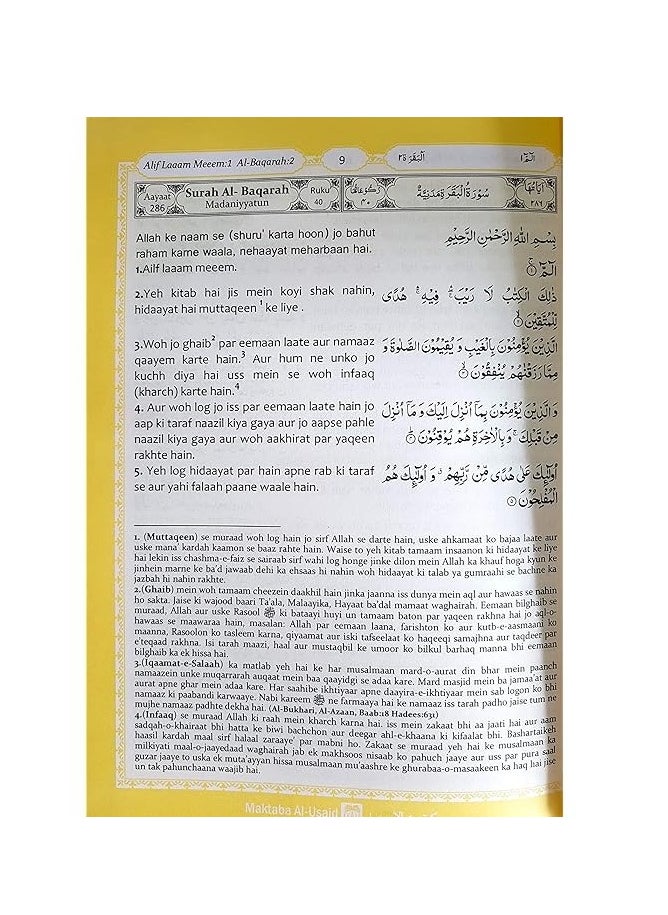 Alif Laaam Meeem:1 Al-Baqarah:2
9
اَلْبَقَرَة ٢
الٓمّٓ ١
Aayaat
286
Surah Al- Baqarah
Madaniyyatun
Ruku
40
رُكُوْعَاتُهَا
٤٠
سُوْرَةُ الْبَقَرَةِ مَدَنِيَّةٌ
اٰيَاتُهَا
٢٨٦
Allah ke naam se (shuru' karta hoon) jo bahut
raham karne waala, nehaayat meharbaan hai.
1.Ailf laaam meeem.
بِسْمِ اللّٰهِ الرَّحْمٰنِ الرَّحِيْمِ
الٓمّٓ ۚ ۝١
2.Yeh kitab hai jis mein koyi shak nahin,
hidaayat hai muttaqeen ¹ ke liye .
ذٰلِكَ الْكِتٰبُ لَا رَيْبَ ۛ فِيْهِ ۛ هُدًى
لِّلْمُتَّقِيْنَ ۙ ۝٢
3.Woh jo ghaib² par eemaan laate aur namaaz
qaayem karte hain.³ Aur hum ne unko jo
kuchh diya hai uss mein se woh infaaq
(kharch) karte hain.⁴
الَّذِيْنَ يُؤْمِنُوْنَ بِالْغَيْبِ وَ يُقِيْمُوْنَ الصَّلٰوةَ وَ
مِمَّا رَزَقْنٰهُمْ يُنْفِقُوْنَ ۙ ۝٣
4. Aur woh log jo iss par eemaan laate hain jo
aap ki taraf naazil kiya gaya aur jo aapse pahle
naazil kiya gaya aur woh aakhirat par yaqeen
rakhte hain.
وَ الَّذِيْنَ يُؤْمِنُوْنَ بِمَاۤ اُنْزِلَ اِلَيْكَ وَ مَاۤ اُنْزِلَ
مِنْ قَبْلِكَ ۚ وَ بِالْاٰخِرَةِ هُمْ يُوْقِنُوْنَ ؕ ۝٤
5. Yeh log hidaayat par hain apne rab ki taraf
se aur yahi falaah paane waale hain.
اُولٰٓئِكَ عَلٰى هُدًى مِّنْ رَّبِّهِمْ ۗ وَ اُولٰٓئِكَ هُمُ
الْمُفْلِحُوْنَ ۝٥
1. (Muttaqeen) se muraad woh log hain jo sirf Allah se darte hain, uske ahkamaat ko bajaa laate aur
uske mana' kardah kaamon se baaz rahte hain. Waise to yeh kitab tamaam insaanon ki hidaayat ke liye
hai lekin iss chashma-e-faiz se sairaab sirf wahi log honge jinke dilon mein Allah ka khauf hoga kyun ke
jinhein marne ke ba'd jawaab dehi ka ehsaas hi nahin woh hidaayat ki talab ya gumraahi se bachne ka
jazbah hi nahin rakhte.
2.(Ghaib) mein woh tamaam cheezein daakhil hain jinka jaanna iss dunya mein aql aur hawaas se nahin
ho sakta. Jaise ki wajood baari Ta'ala, Malaayika, Hayaat ba'dal mamaat waghairah. Eemaan bilghaib se
muraad, Allah aur uske Rasool ﷺ ki bataayi huyi un tamaam baton par yaqeen rakhna hai jo aql-o-
hawaas se maawaraa hain, masalan: Allah par eemaan laana, farishton ko aur kutb-e-aasmaani ko
maanna, Rasoolon ko tasleem karna, qiyaamat aur iski tafseelaat ko haqeeqi samajhna aur taqdeer par
e'teqaad rakhna. Isi tarah maazi, haal aur mustaqbil ke umoor ko bilkul barhaq manna bhi eemaan
bilghaib ka ek hissa hai.
3.(Iqaamat-e-Salaah) ka matlab yeh hai ke har musalmaan mard-o-aurat din bhar mein paanch
namaazein unke muqarrarah auqaat mein baa qaayidgi se adaa kare. Mard masjid mein ba jamaa'at aur
aurat apne ghar mein adaa kare. Har saahibe ikhtiyaar apne daayira-e-ikhtiyaar mein sab logon ko bhi
namaaz ki paabandi karwaaye. Nabi kareem ﷺ ne farmaaya hai ke namaaz iss tarah padho jaise tum ne
mujhe namaaz padhte dekha hai. (Al-Bukhari, Al-Azaan, Baab:18 Hadees:631)
4.(Infaaq) se muraad Allah ki raah mein kharch karna hai. iss mein zakaat bhi aa jaati hai aur aam
sadqah-o-khairaat bhi hatta ke biwi bachchon aur deegar ahl-e-khaana ki kifaalat bhi. Bashartaikeh
haasil kardah maal sirf halaal zaraaye' par mabni ho. Zakaat se muraad yeh hai ke musalmaan ka
milkiyati maal-o-jaayedaad waghairah jab ek makhsoos nisaab ko pahuch jaaye aur uss par pura saal
guzar jaaye to uska ek muta'ayyan hissa musalmaan mu'aashre ke ghurabaa-o-masaakeen ka haq hai jise
un tak pahunchaana waajib hai.
Maktaba Al-Usaid